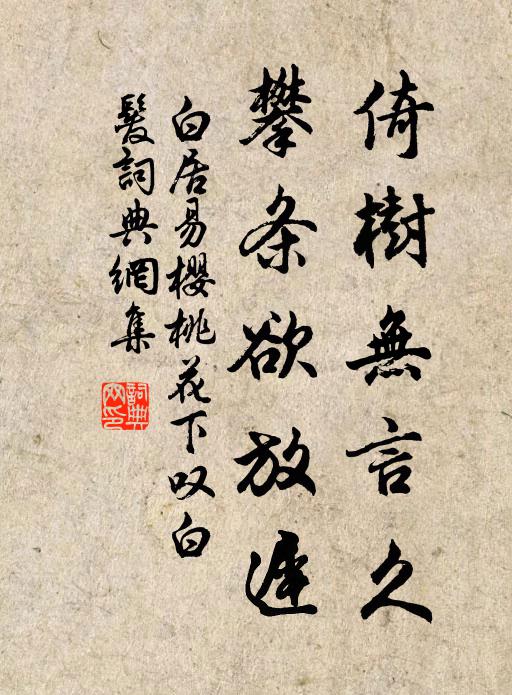 倚樹無言久
攀条欲放遲
白居易櫻桃花下叹白
髮詞典網集
詞典
网印